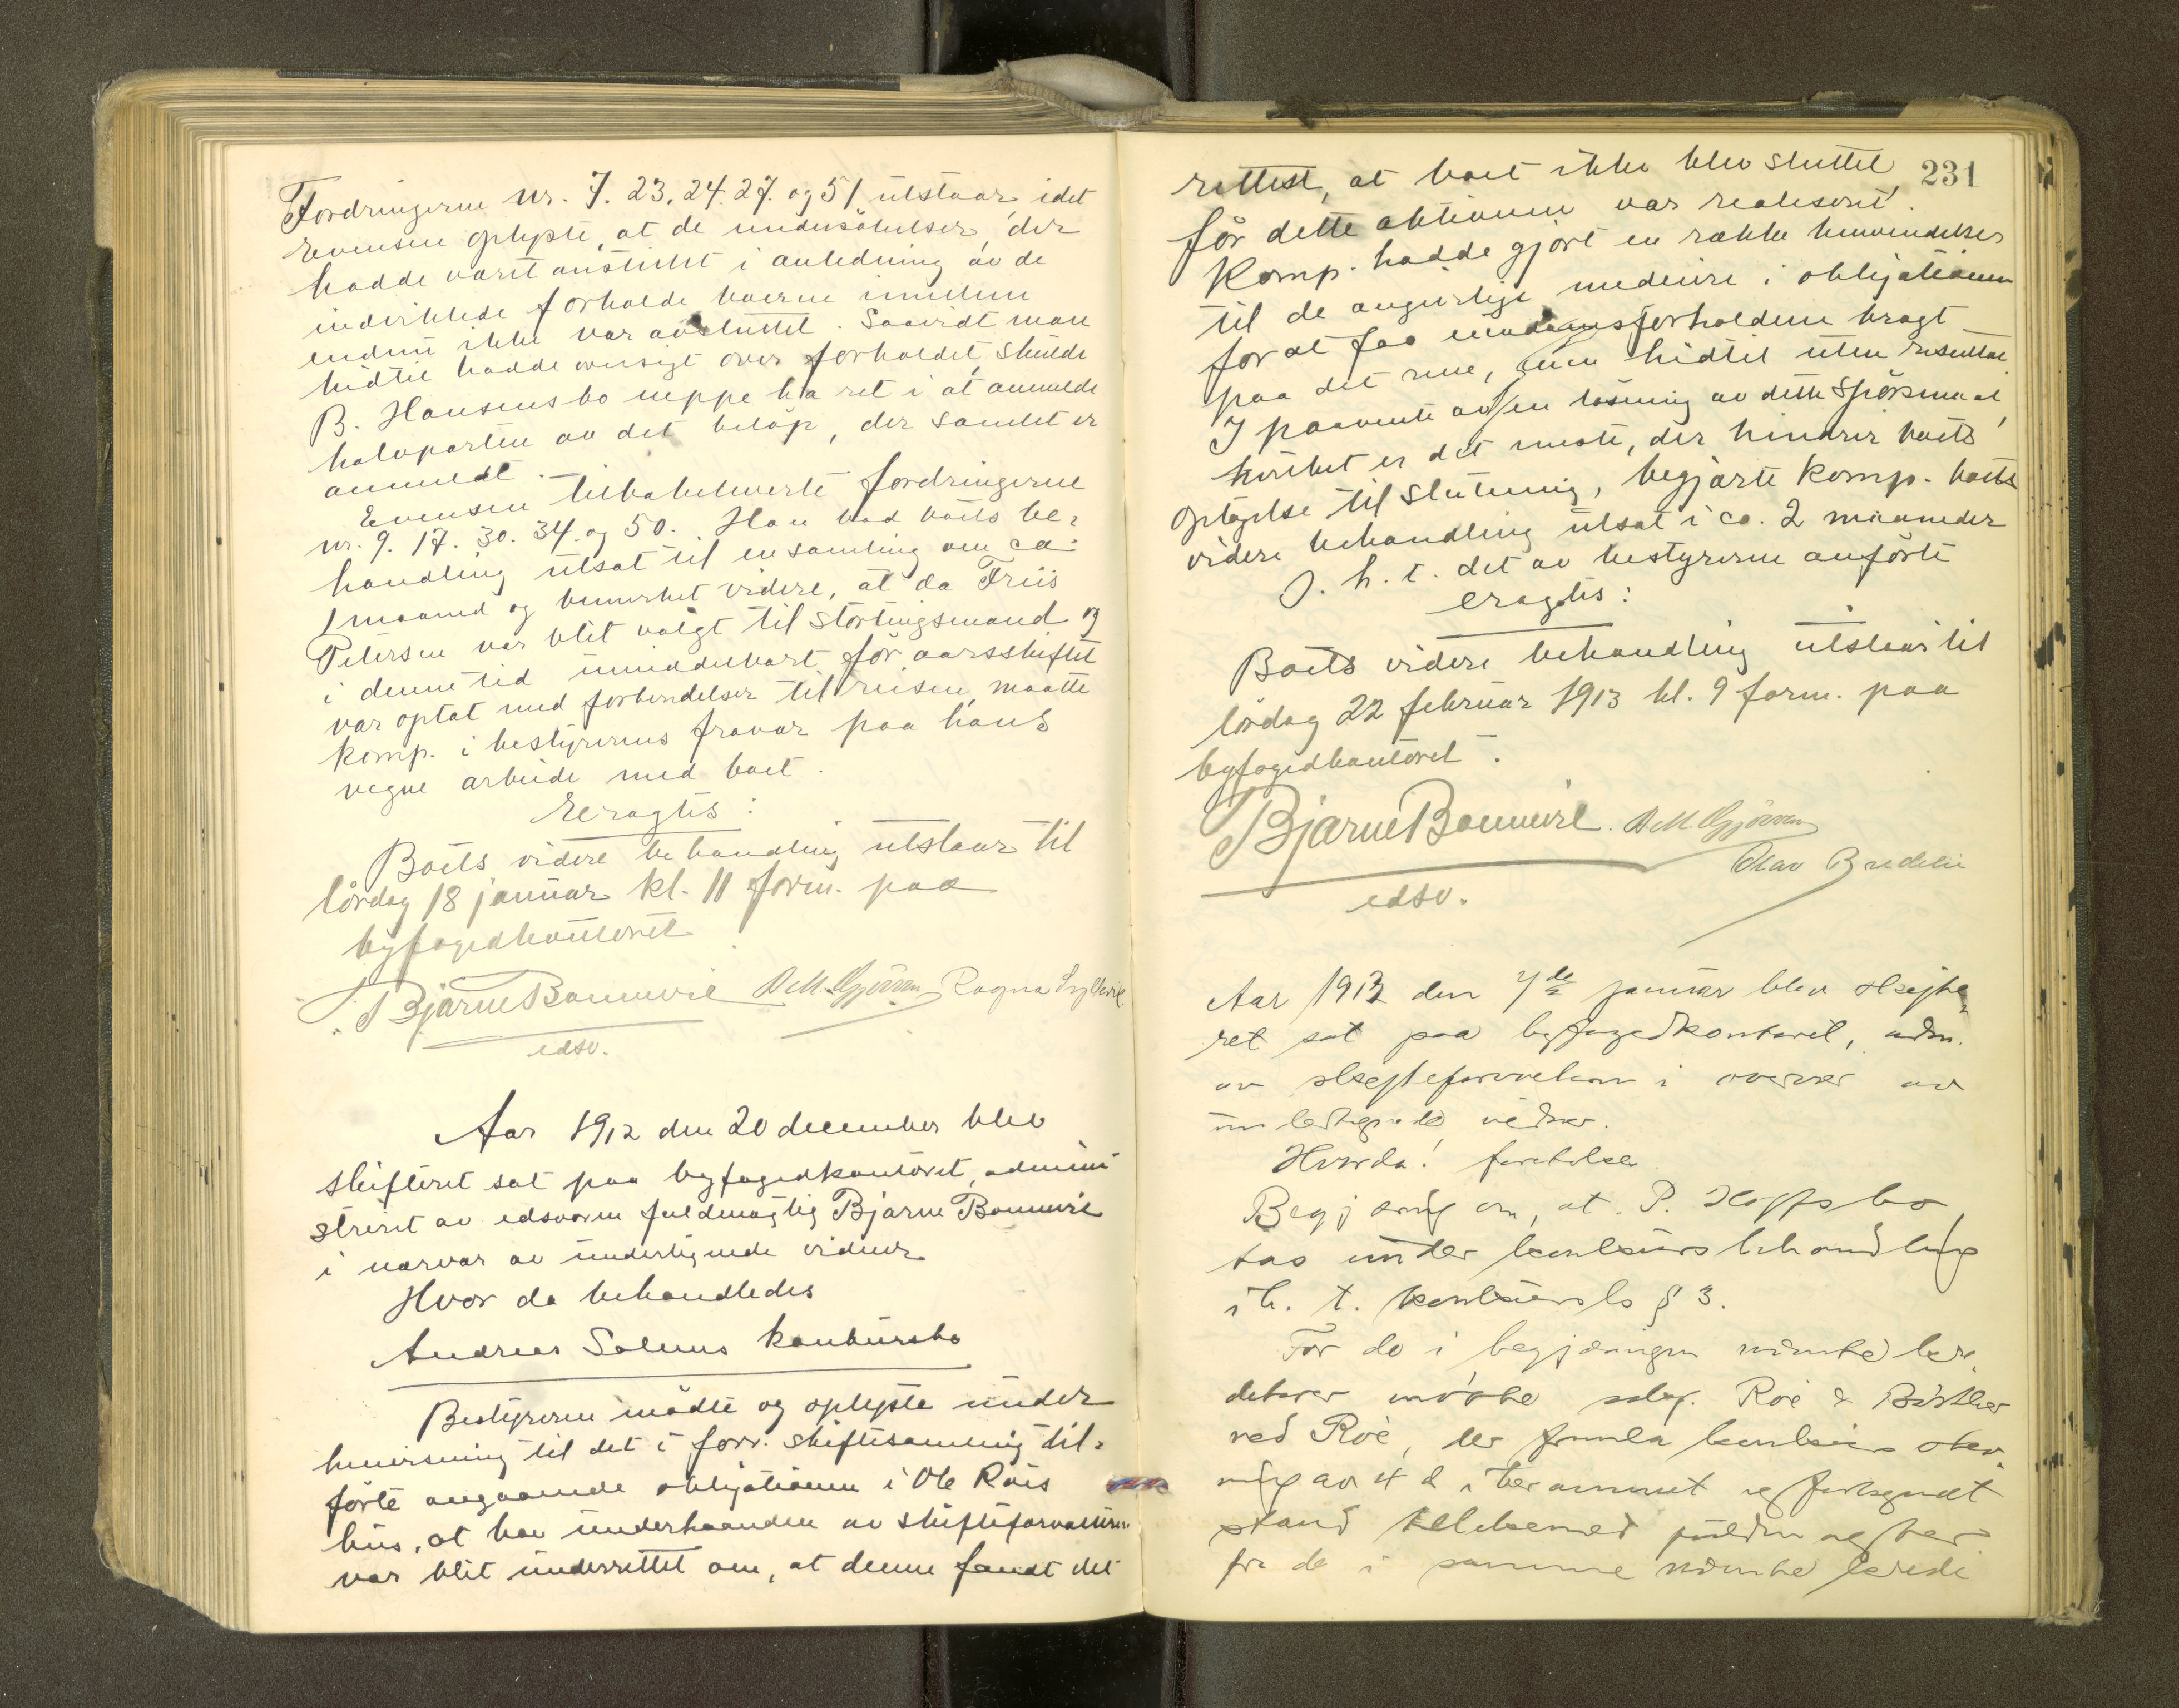 Fordringerne nr. 7. 23. 24. 27. og 51 utstaar, idet
Evensen oplyste, at de undersökelser, der
hadde været anstillet i anledning av de
indviklede forholde boerne imellem
endnu ikke var avsluttet. Saavidt man
hidtil hadde oversigt over forholdet, skulde
B. Hansens bo neppe ha ret i at anmelde
halvparten av det belöp, der samlet er
anmeldt.
Evensen tilbakekaldte fordringerne
nr. 9. 17. 30. 34. og 50. Han bad boets be-
handling utsat til en samling om ca.
1 maaned og bemerket videre, at da Friis
Petersen var blit valgt til stortingsmand og
i denne tid umiddelbart för aarsskiftet
var optat med forberedelser til reisen, maatte
komp. i bestyrerens fravær paa hans
vegne arbeide med boet.
Eragtes:
Boets videre behandling utstaar til
lördag 18 januar kl. 11 form. paa
byfogedkontoret.
Bjarne Bonnevie A M. Gjörven Ragna
edsv.
Aar 1912 den 20 december blev
skifteret sat paa byfogedkontoret, admini-
streret av edsvoren fuldmægtig Bjarne Bonnevie
i nærvær av undertegnede vidner.
Hvor da behandledes
Andreas Solums konkursbo
Bestyreren mödte og oplyste under
henvisning til det i forr. skiftesamling til-
förte angaaende obligationen i Ole Röis
hus, at han underhaanden av skifteforvalteren
var blit underrettet om, at denne fandt det
231
rettest, at boet ikke blev sluttet,
för dette aktivum var realisert.
Komp. hadde gjort en række henvendelser
til de angivelige medeiere i obligationen
for at faa eiendomsforholdene bragt
paa det rene, men hidtil uten resultat.
I paavente av en lösning av dette spörsmaal,
hvilket er det meste, der hindrer boets
optagelse til slutning, begjærte komp. boets
videre behandling utsat i ca. 2 maaneder
I. h. t. det av bestyreren anförte
eragtes:
Boets videre behandling utstaar til
lördag 22 februar 1913 kl. 9 form. paa
byfogedkontoret.
Bjarne Bonnevie. A M. Gjörven
Olav Bredeli
edsv.
Aar 1913 den 7de januar blev skifte-
ret sat paa byfogedkontoret, adm.
av skifteforvalteren i overvær av
undertegnede vidner.
Hvorda! foretokes
Begjæring om, at P. Hoffs bo
tas under konkursbehandling
i h. t. konkursls § 3.
For de i begjæringen nævnte kre-
ditorer mötte sakf. Röe &
ved Röe, der fremla konkursbegjæ-
ring av 4 d. i bekræftet og forkyndt
stand tillikemed fuldm og
fra de i samme nævnte kredi